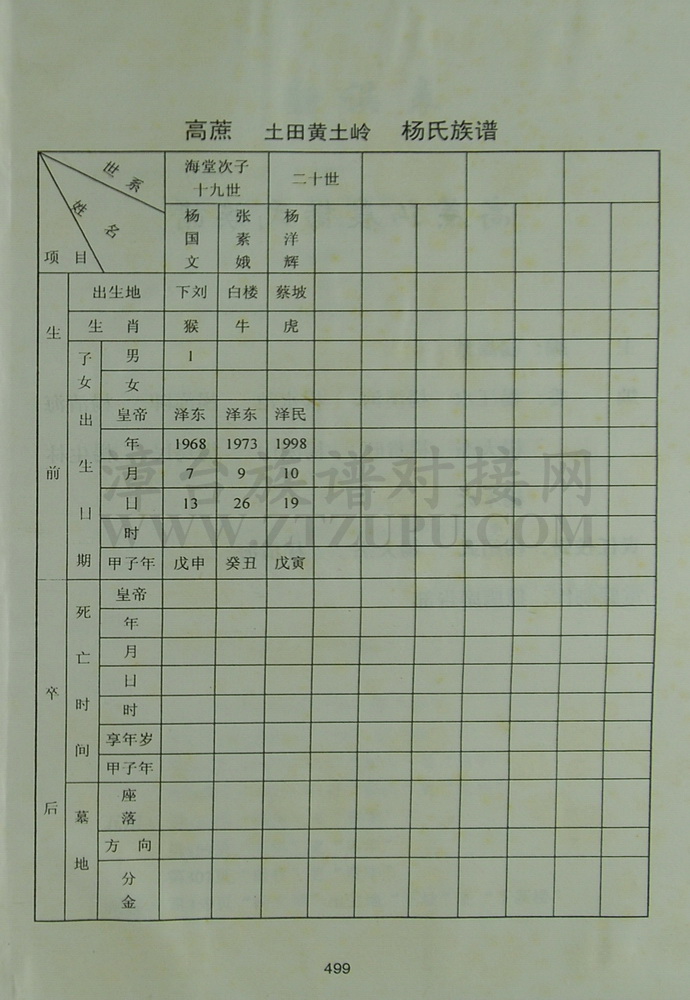 高蔗 土田黄土岭 杨氏族谱
世系 海堂次子 十九世 二十世
姓名 杨国文 张素娥 杨洋辉
项目
生前
出生地 下刘 白楼 蔡坡
生肖 猴 牛 虎
子女 男 1
女
出生日期 皇帝 泽东 泽东 泽民
年 1968 1973 1998
月 7 9 10
日 13 26 19
时
甲子年 戊申 癸丑 戊寅
卒后
死亡时间 皇帝
年
月
日
时
享年岁
甲子年
墓地 座落
方向
分金
漳台族谱对接网
WWW.ZTZUPU.COM
499